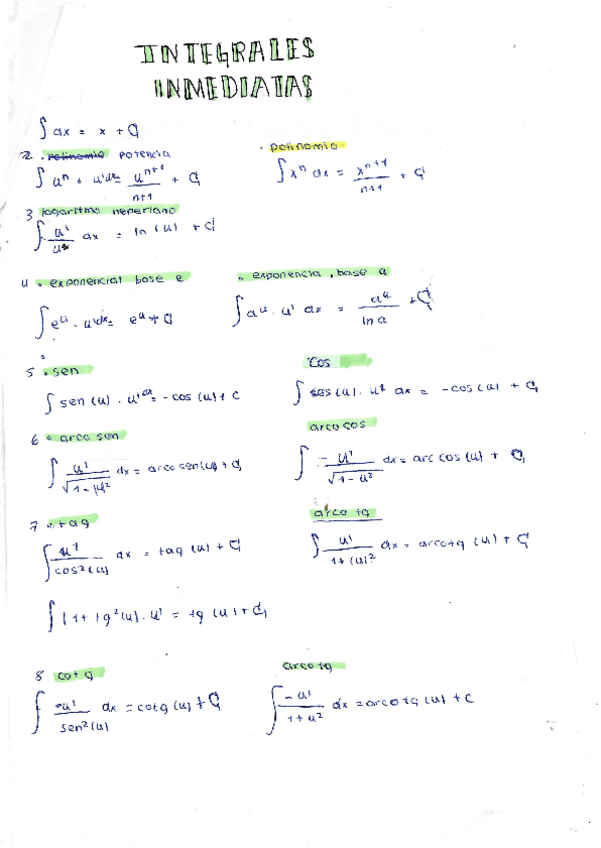 INTEGRALES
INMEDIATAS
∫ dx = x + C
2 . polinomio potencia
∫ uⁿ · u' dx = uⁿ⁺¹/n+1 + C
· polinomio
∫ xⁿ dx = xⁿ⁺¹/n+1 + C
3 logaritmo neperiano
∫ u'/u dx = ln (u) + C
4 . exponencial base e
∫ eᵘ · u' dx = eᵘ + C
. exponencia, base a
∫ aᵘ · u' dx = aᵘ/ln a + C
5 . sen
∫ sen (u) · u' dx = -cos (u) + C
Cos
∫ (u) · u' dx = -cos (u) + C
6 . arco sen
∫ u'/√1-(u)² dx = arco sen(u) + C
arco cos
∫ -u'/√1-u² dx = arc cos (u) + C
7 . tag
∫ u'/cos²(u) dx = tag (u) + C
arco tg
∫ u'/1+(u)² dx = arcotg (u) + C
∫ (1 + tg²(u) · u' = tg (u) + C
8 cotg
∫ -u'/sen²(u) dx = cotg (u) + C
arco tg
∫ -u'/1+u² dx = arcotg (u) + C